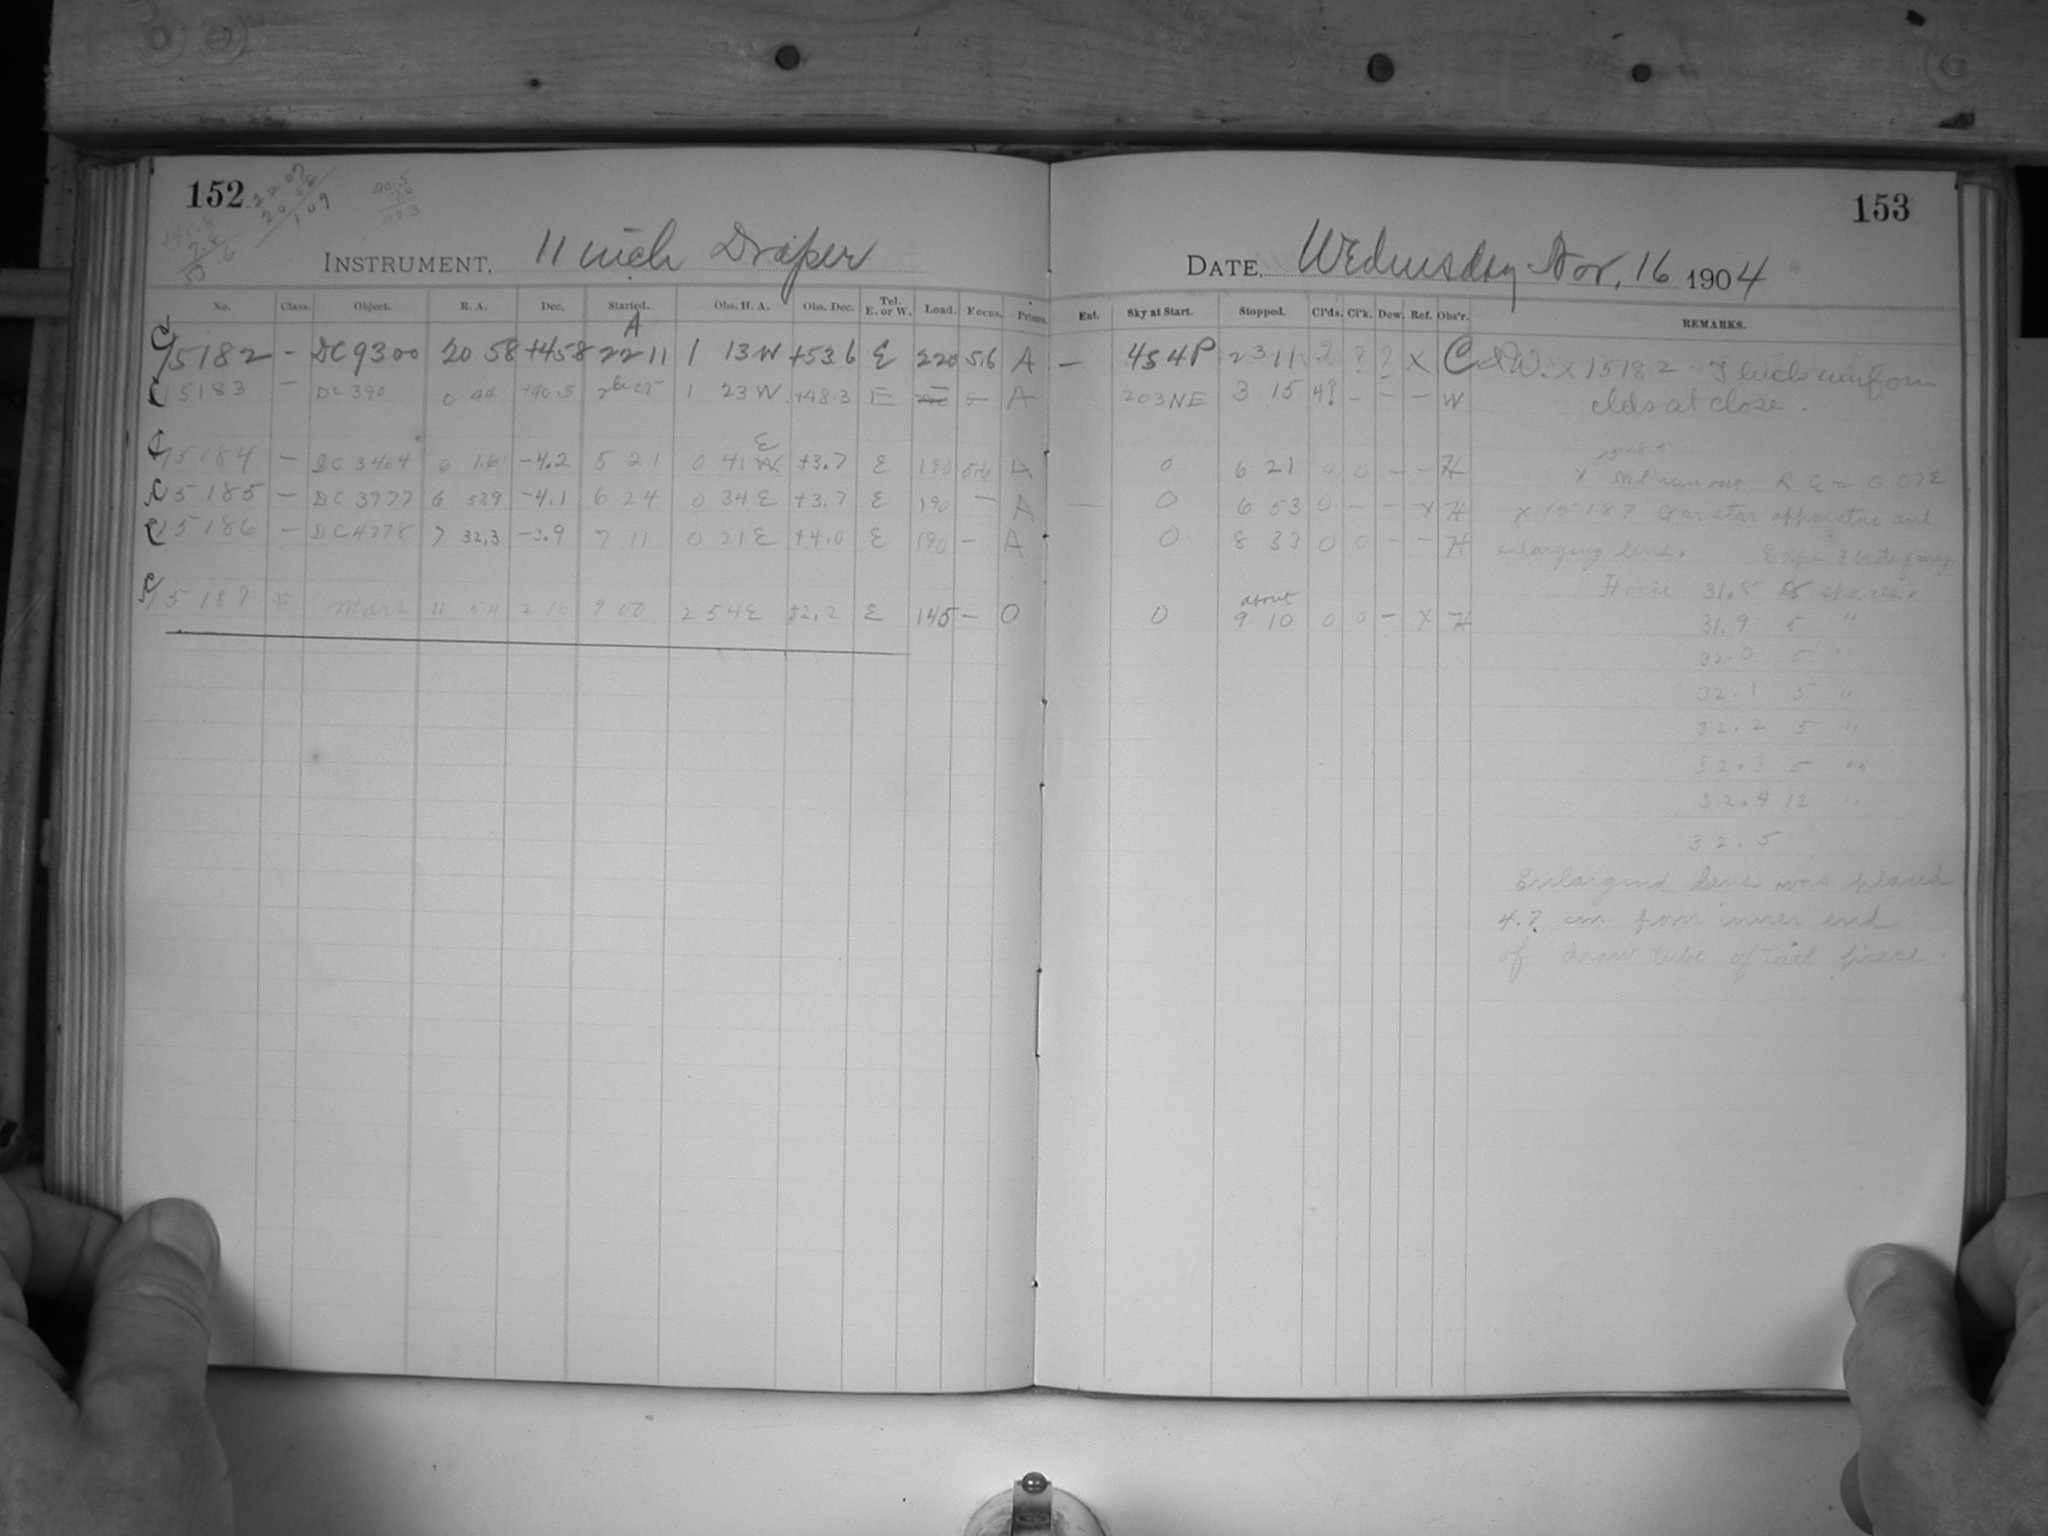 152
22 07
20 58
1 09
153
INSTRUMENT, 11 inch Draper
DATE, Wednesday Nov, 16 1904
No. Class. Object. R. A. Dec. Started. Obs. H. A. Obs. Dec. Tel. E. or W. Load. Focus. Prisms. Ent. Sky at Start. Stopped. Cl'ds. Cl'k. Dew. Ref. Obs'r. REMARKS.
A
C 15182 – DC 9300 20 58 +45.8 22 11 1 13 W +53.6 E 220 5.6 A – 454P 23 11 2 ? ? X C &W. X 15182 Thick uniform
C 15183 – DC 390 0 +40.5 1 23 W +48.3 E – A 203NE 3 15 4? – – – W clds at close.
C 15184 – DC 3464 6 1.6 -4.2 5 21 0 41 E +3.7 E 190 5.6 A 0 6 21 0 0 – – H
C 15185 – DC 3977 6 52.9 -4.1 6 24 0 34 E +3.7 E 190 – A – 0 6 53 0 – – X H X 15187 star apparatus and
C 15186 – DC 4278 7 32.3 -3.9 7 11 0 21 E +4.0 E 190 – A 0 8 33 0 0 – – H enlarging lens.
31.8 5 spaces.
C 15187 F Mars 11 54 9 00 2 54 E +2.2 E 145 – O 0 about 9 10 0 0 – X H
31.9 5 "
32.0 5 "
32.1 5 "
32.2 5 "
32.3 5 "
32.4 12 "
32.5
Enlarging lens was placed
4.7 cm from inner end
of draw tube of tail piece.